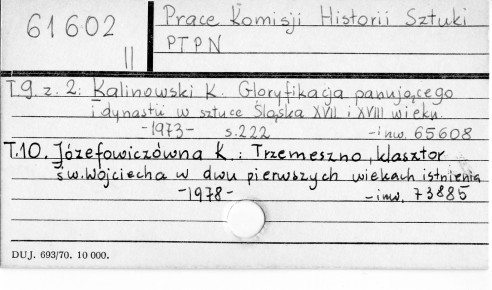 61602
II
Prace Komisji Historii Sztuki
PTPN
T.9. z. 2: Kalinowski K. Gloryfikacja panującego
i dynastii w sztuce Śląska XVII i XVIII wieku.
-1973- s.222 -inw. 65608
T.10. Józefowiczówna K.: Trzemeszno, klasztor
św. Wojciecha w dwu pierwszych wiekach istnienia
-1978- -inw. 73885
DUJ. 693/70. 10 000.